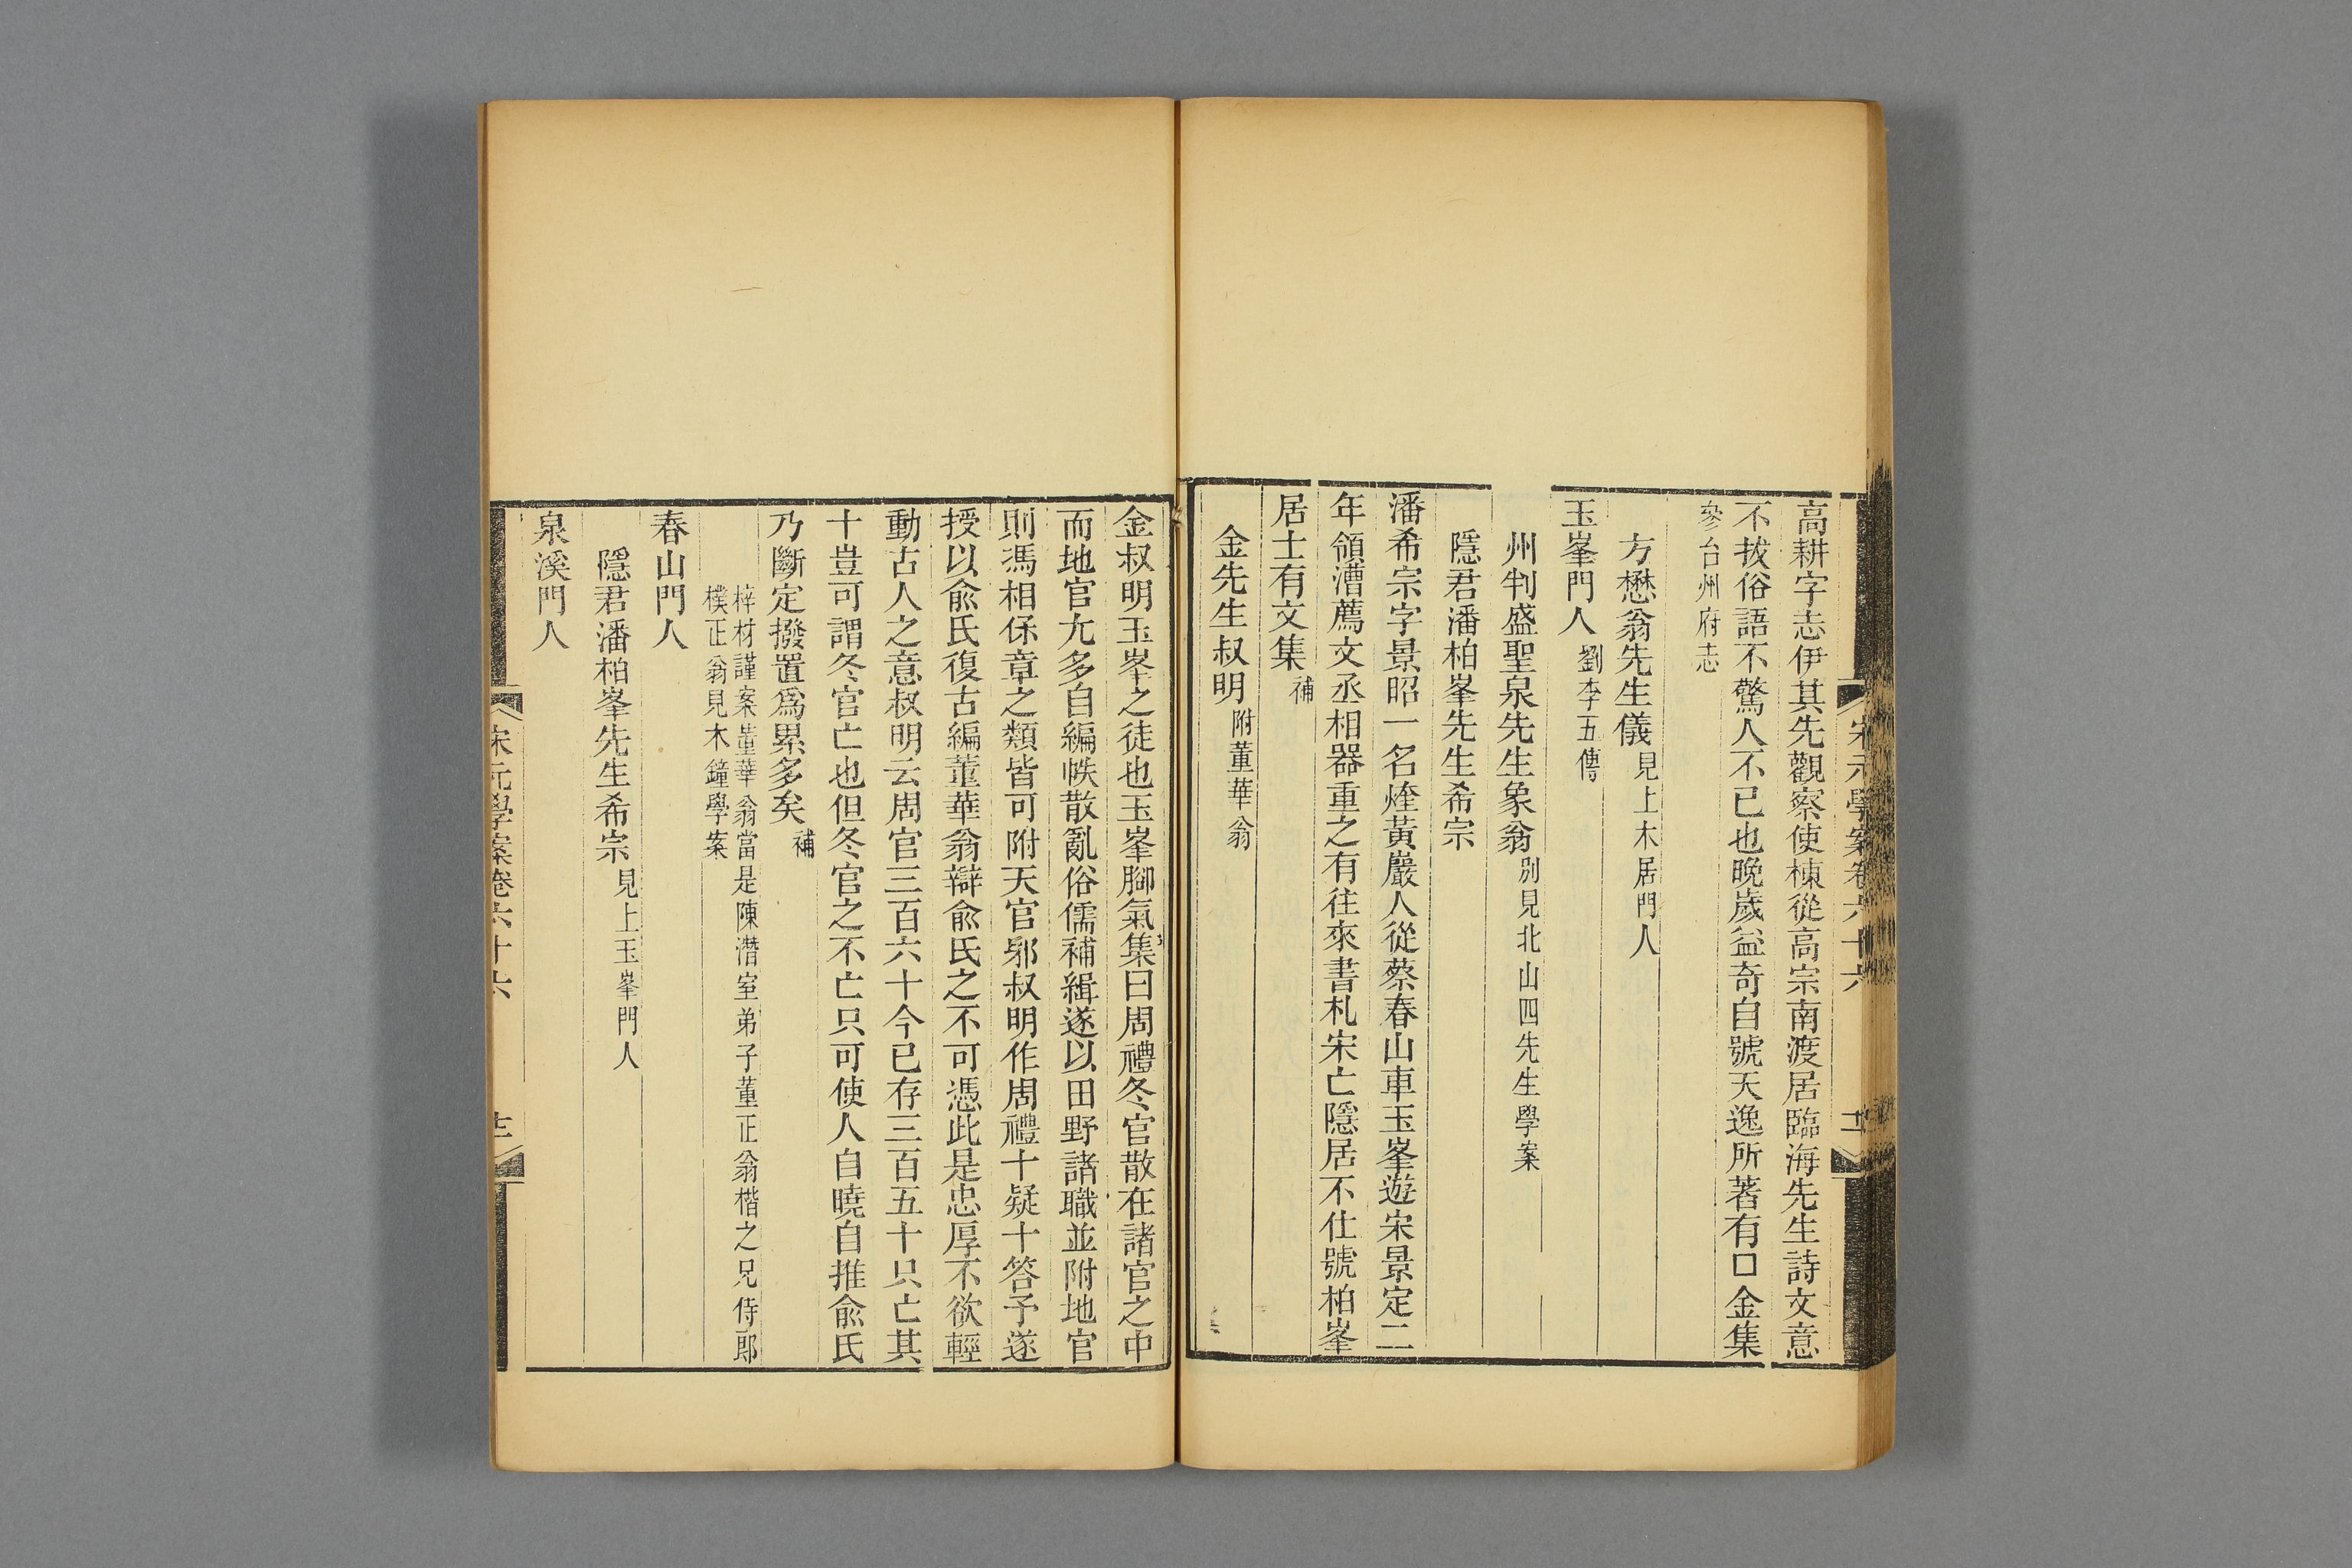 高耕字志伊其先觀察使棟從高宗南渡居臨海先生詩文意
不拔俗語不驚人不已也晚歲益奇自號天逸所著有口金集
參台州府志
方懋翁先生儀見上木居門人
玉峯門人劉李五傳
州判盛聖泉先生象翁別見北山四先生學案
隱君潘柏峯先生希宗
潘希宗字景昭一名煃黃巖人從蔡春山車玉峯遊宋景定二
年領漕薦文丞相器重之有往來書札宋亡隱居不仕號柏峯
居士有文集補
金先生叔明附董華翁
金叔明玉峯之徒也玉峯腳氣集曰周禮冬官散在諸官之中
而地官尢多自編帙散亂俗儒補緝遂以田野諸職並附地官
則馮相保章之類皆可附天官邪叔明作周禮十疑十答予遂
授以俞氏復古編董華翁辯俞氏之不可憑此是忠厚不欲輕
動古人之意叔明云周官三百六十今已存三百五十只亡其
十豈可謂冬官亡也但冬官之不亡只可使人自曉自推俞氏
乃斷定撥置爲累多矣補
梓材謹案董華翁當是陳潛室弟子董正翁楷之兄侍郎
樸正翁見木鐘學案
春山門人
隱君潘柏峯先生希宗見上玉峯門人
泉溪門人
宋元學案卷六十六